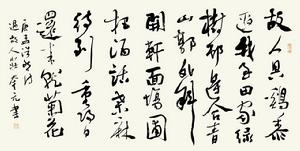 故人具鷄黍
邀我至田家綠
樹邨邊合青
山郭外斜
開軒面場圃
把酒話桑麻
待到重陽日
還来就菊花
孟浩然詩
過故人莊 書